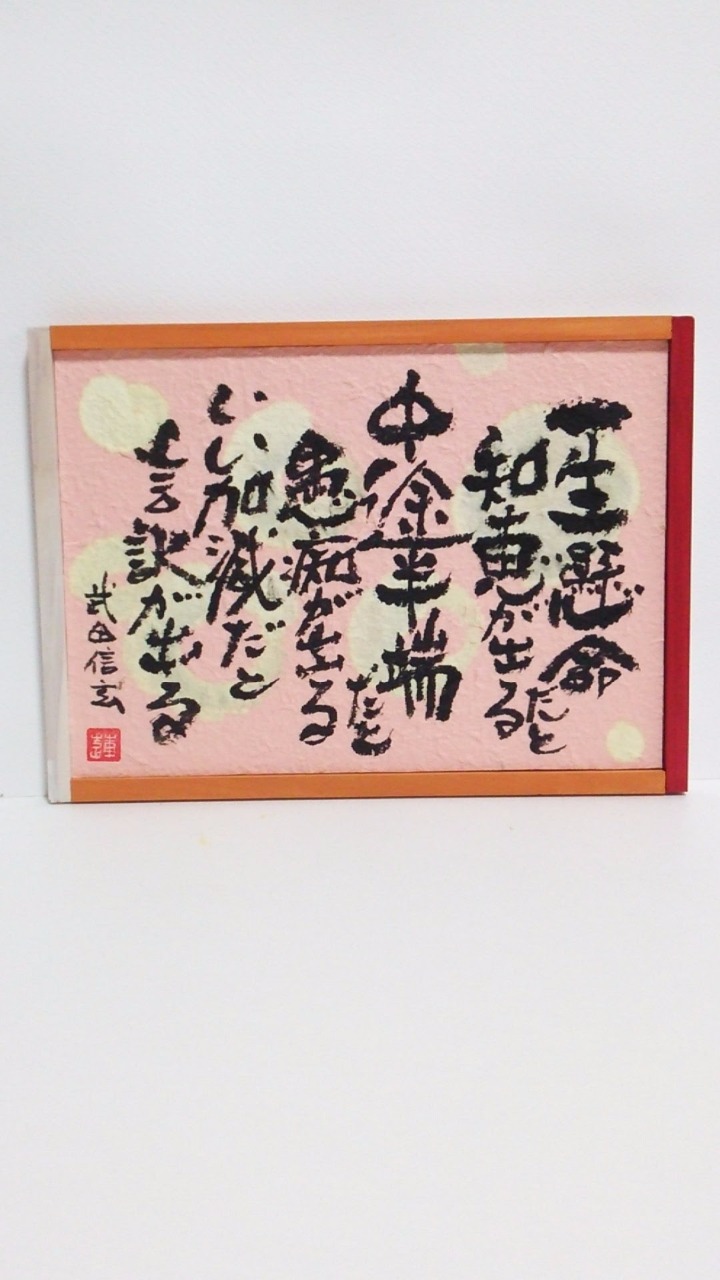 一生懸命だと
知恵が出る
中途半端だと
愚痴が出る
いい加減だと
言訳が出る
武田信玄